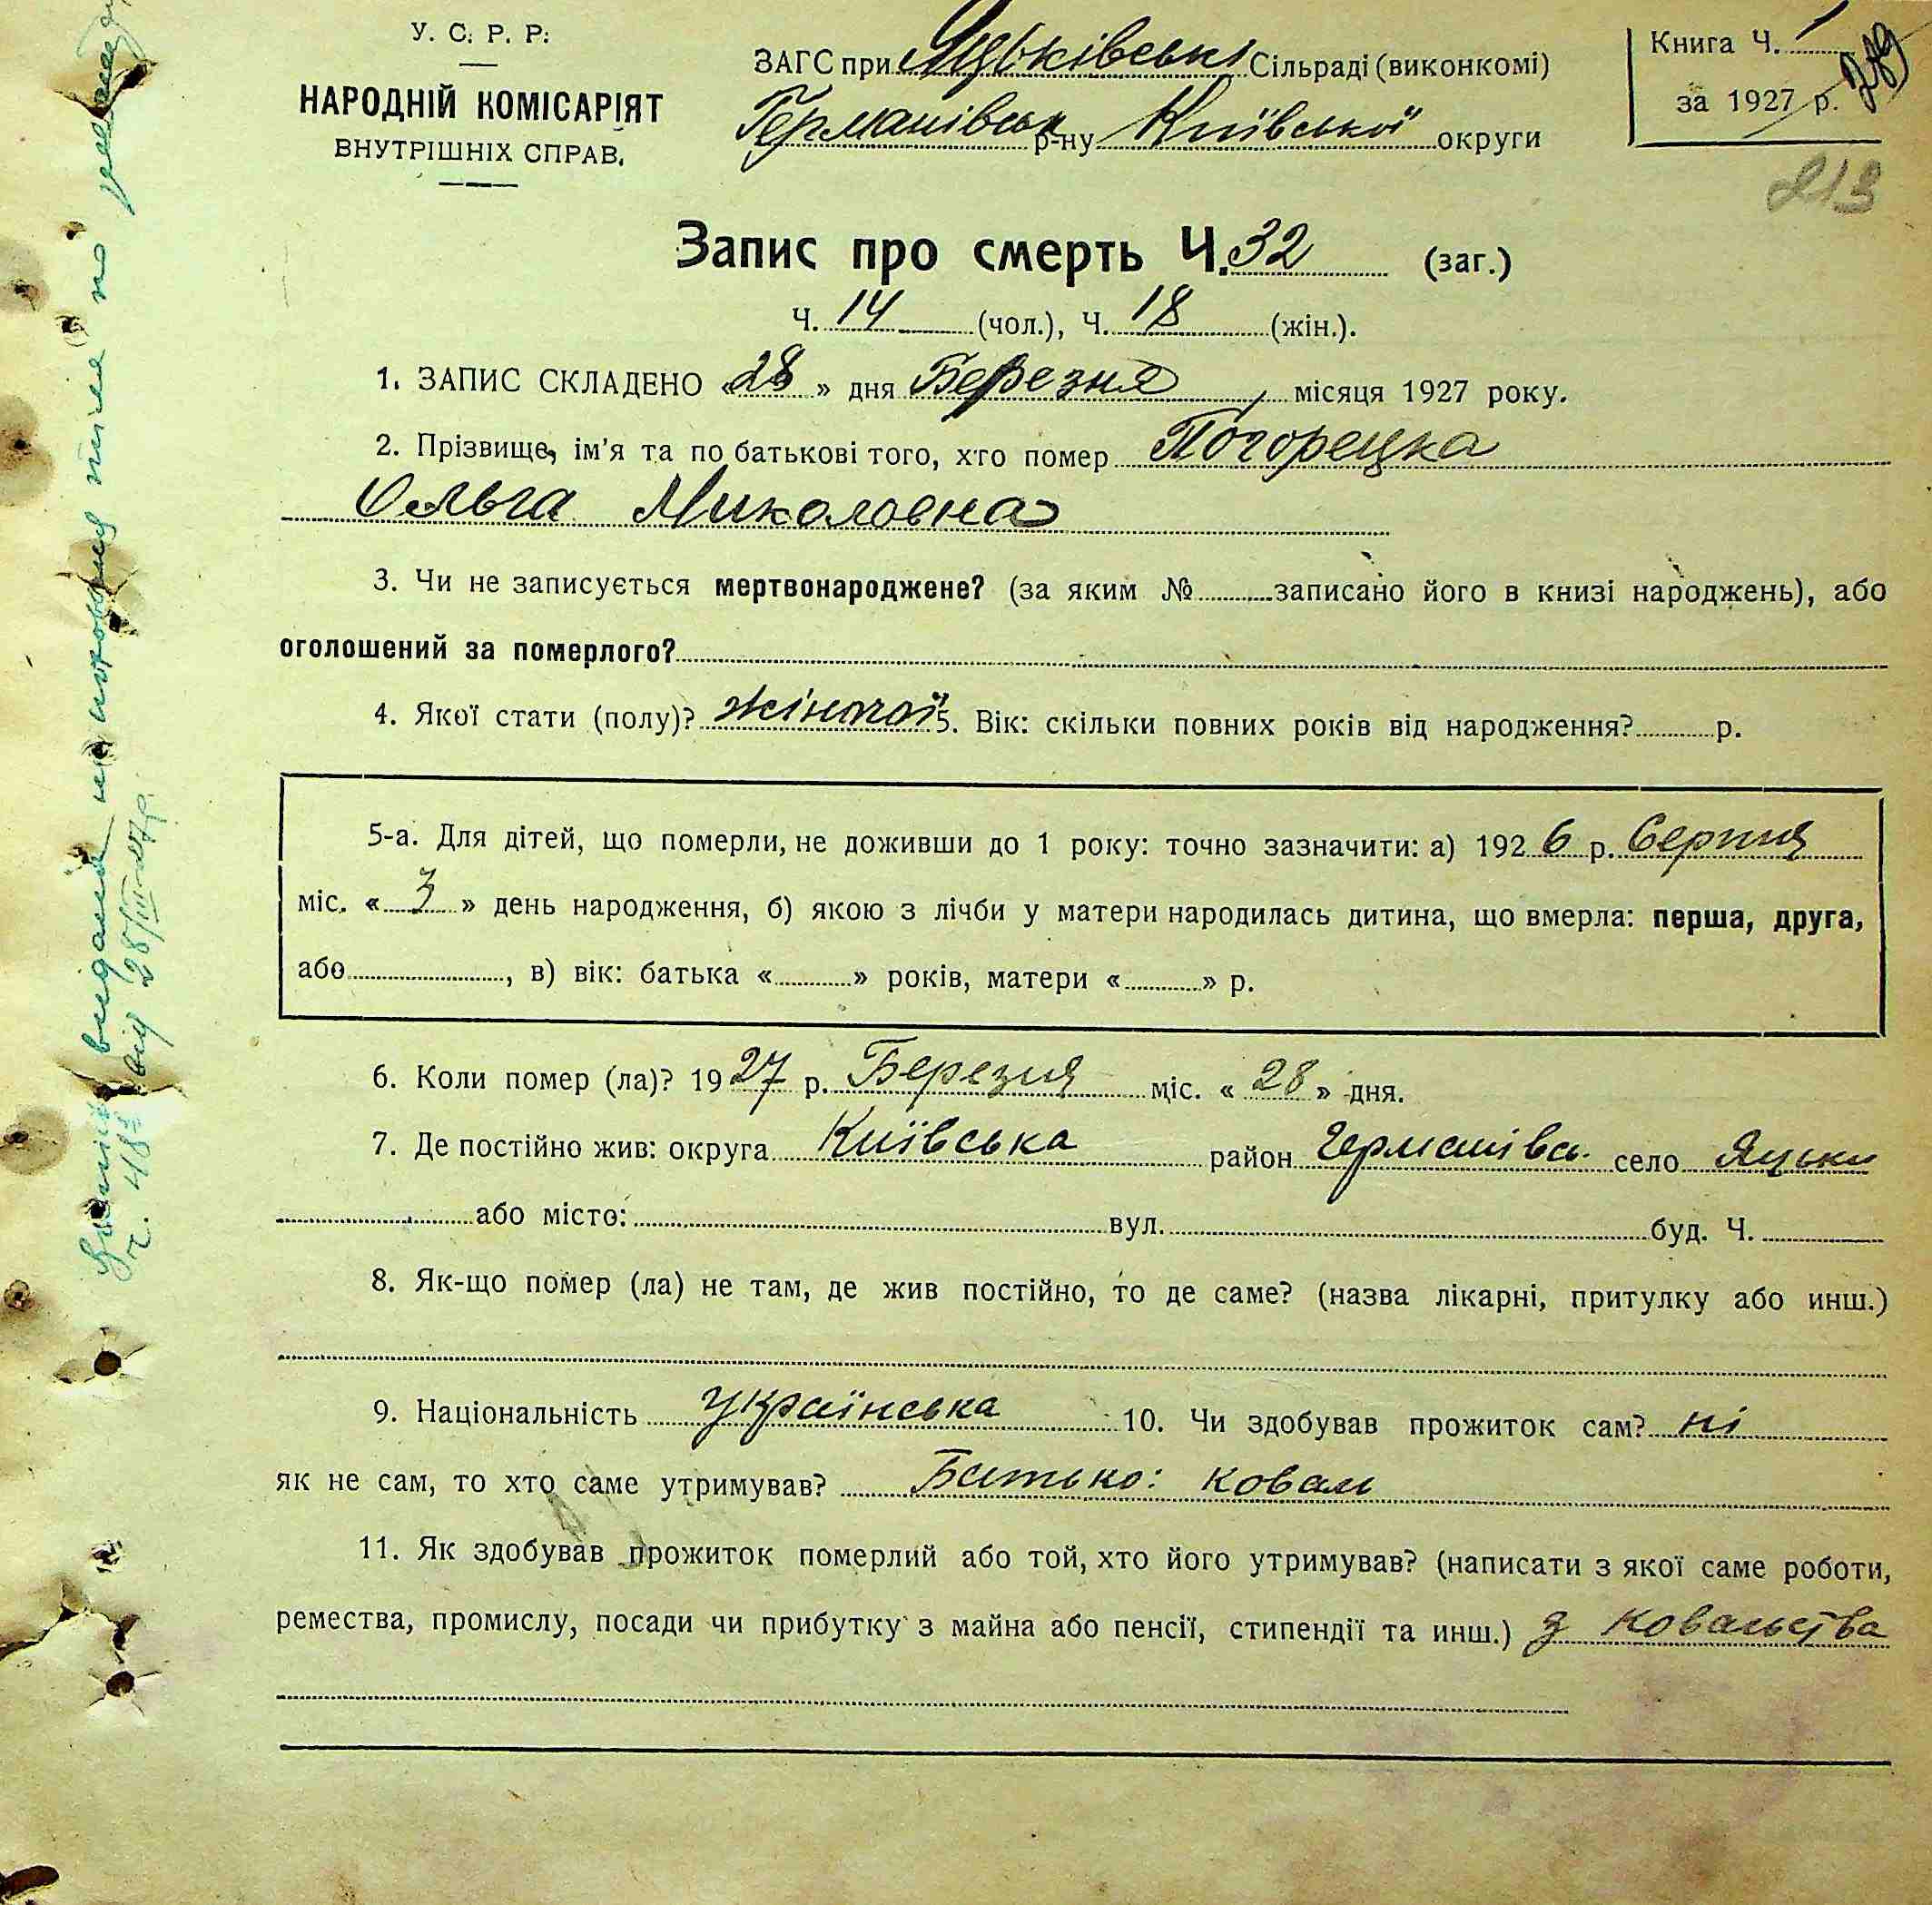 У. С. Р. Р.
НАРОДНІЙ КОМІСАРІЯТ
ВНУТРІШНІХ СПРАВ.
ЗАГС при Яцьківські Сільраді (виконкомі)
Германівськ р-ну Київської округи
Книга Ч. 1
за 1927 р.
289
213
Запис про смерть Ч. 32 (заг.)
Ч. 14 (чол.), Ч. 18 (жін.).
1. ЗАПИС СКЛАДЕНО «28» дня Березня місяця 1927 року.
2. Прізвище, ім'я та по батькові того, хто помер Погорецка
Ольга Миколовна
3. Чи не записується мертвонароджене? (за яким № записано його в книзі народжень), або
оголошений за померлого?
4. Якої стати (полу)? жіночої 5. Вік: скільки повних років від народження? р.
5-а. Для дітей, що померли, не доживши до 1 року: точно зазначити: а) 1926 р. Серпня
міс. «3» день народження, б) якою з лічби у матери народилась дитина, що вмерла: перша, друга,
або , в) вік: батька « » років, матери « » р.
6. Коли помер (ла)? 1927 р. Березня міс. «28» дня.
7. Де постійно жив: округа Київська район Германівсь. село Яцьки
або місто: вул. буд. Ч.
8. Як-що помер (ла) не там, де жив постійно, то де саме? (назва лікарні, притулку або инш.)
9. Національність українська 10. Чи здобував прожиток сам? ні
як не сам, то хто саме утримував? Батько: коваль
11. Як здобував прожиток померлий або той, хто його утримував? (написати з якої саме роботи,
ремества, промислу, посади чи прибутку з майна або пенсії, стипендії та инш.) з ковальства
видано на похорон тіла по
ч. 48 від 28/III-27р.